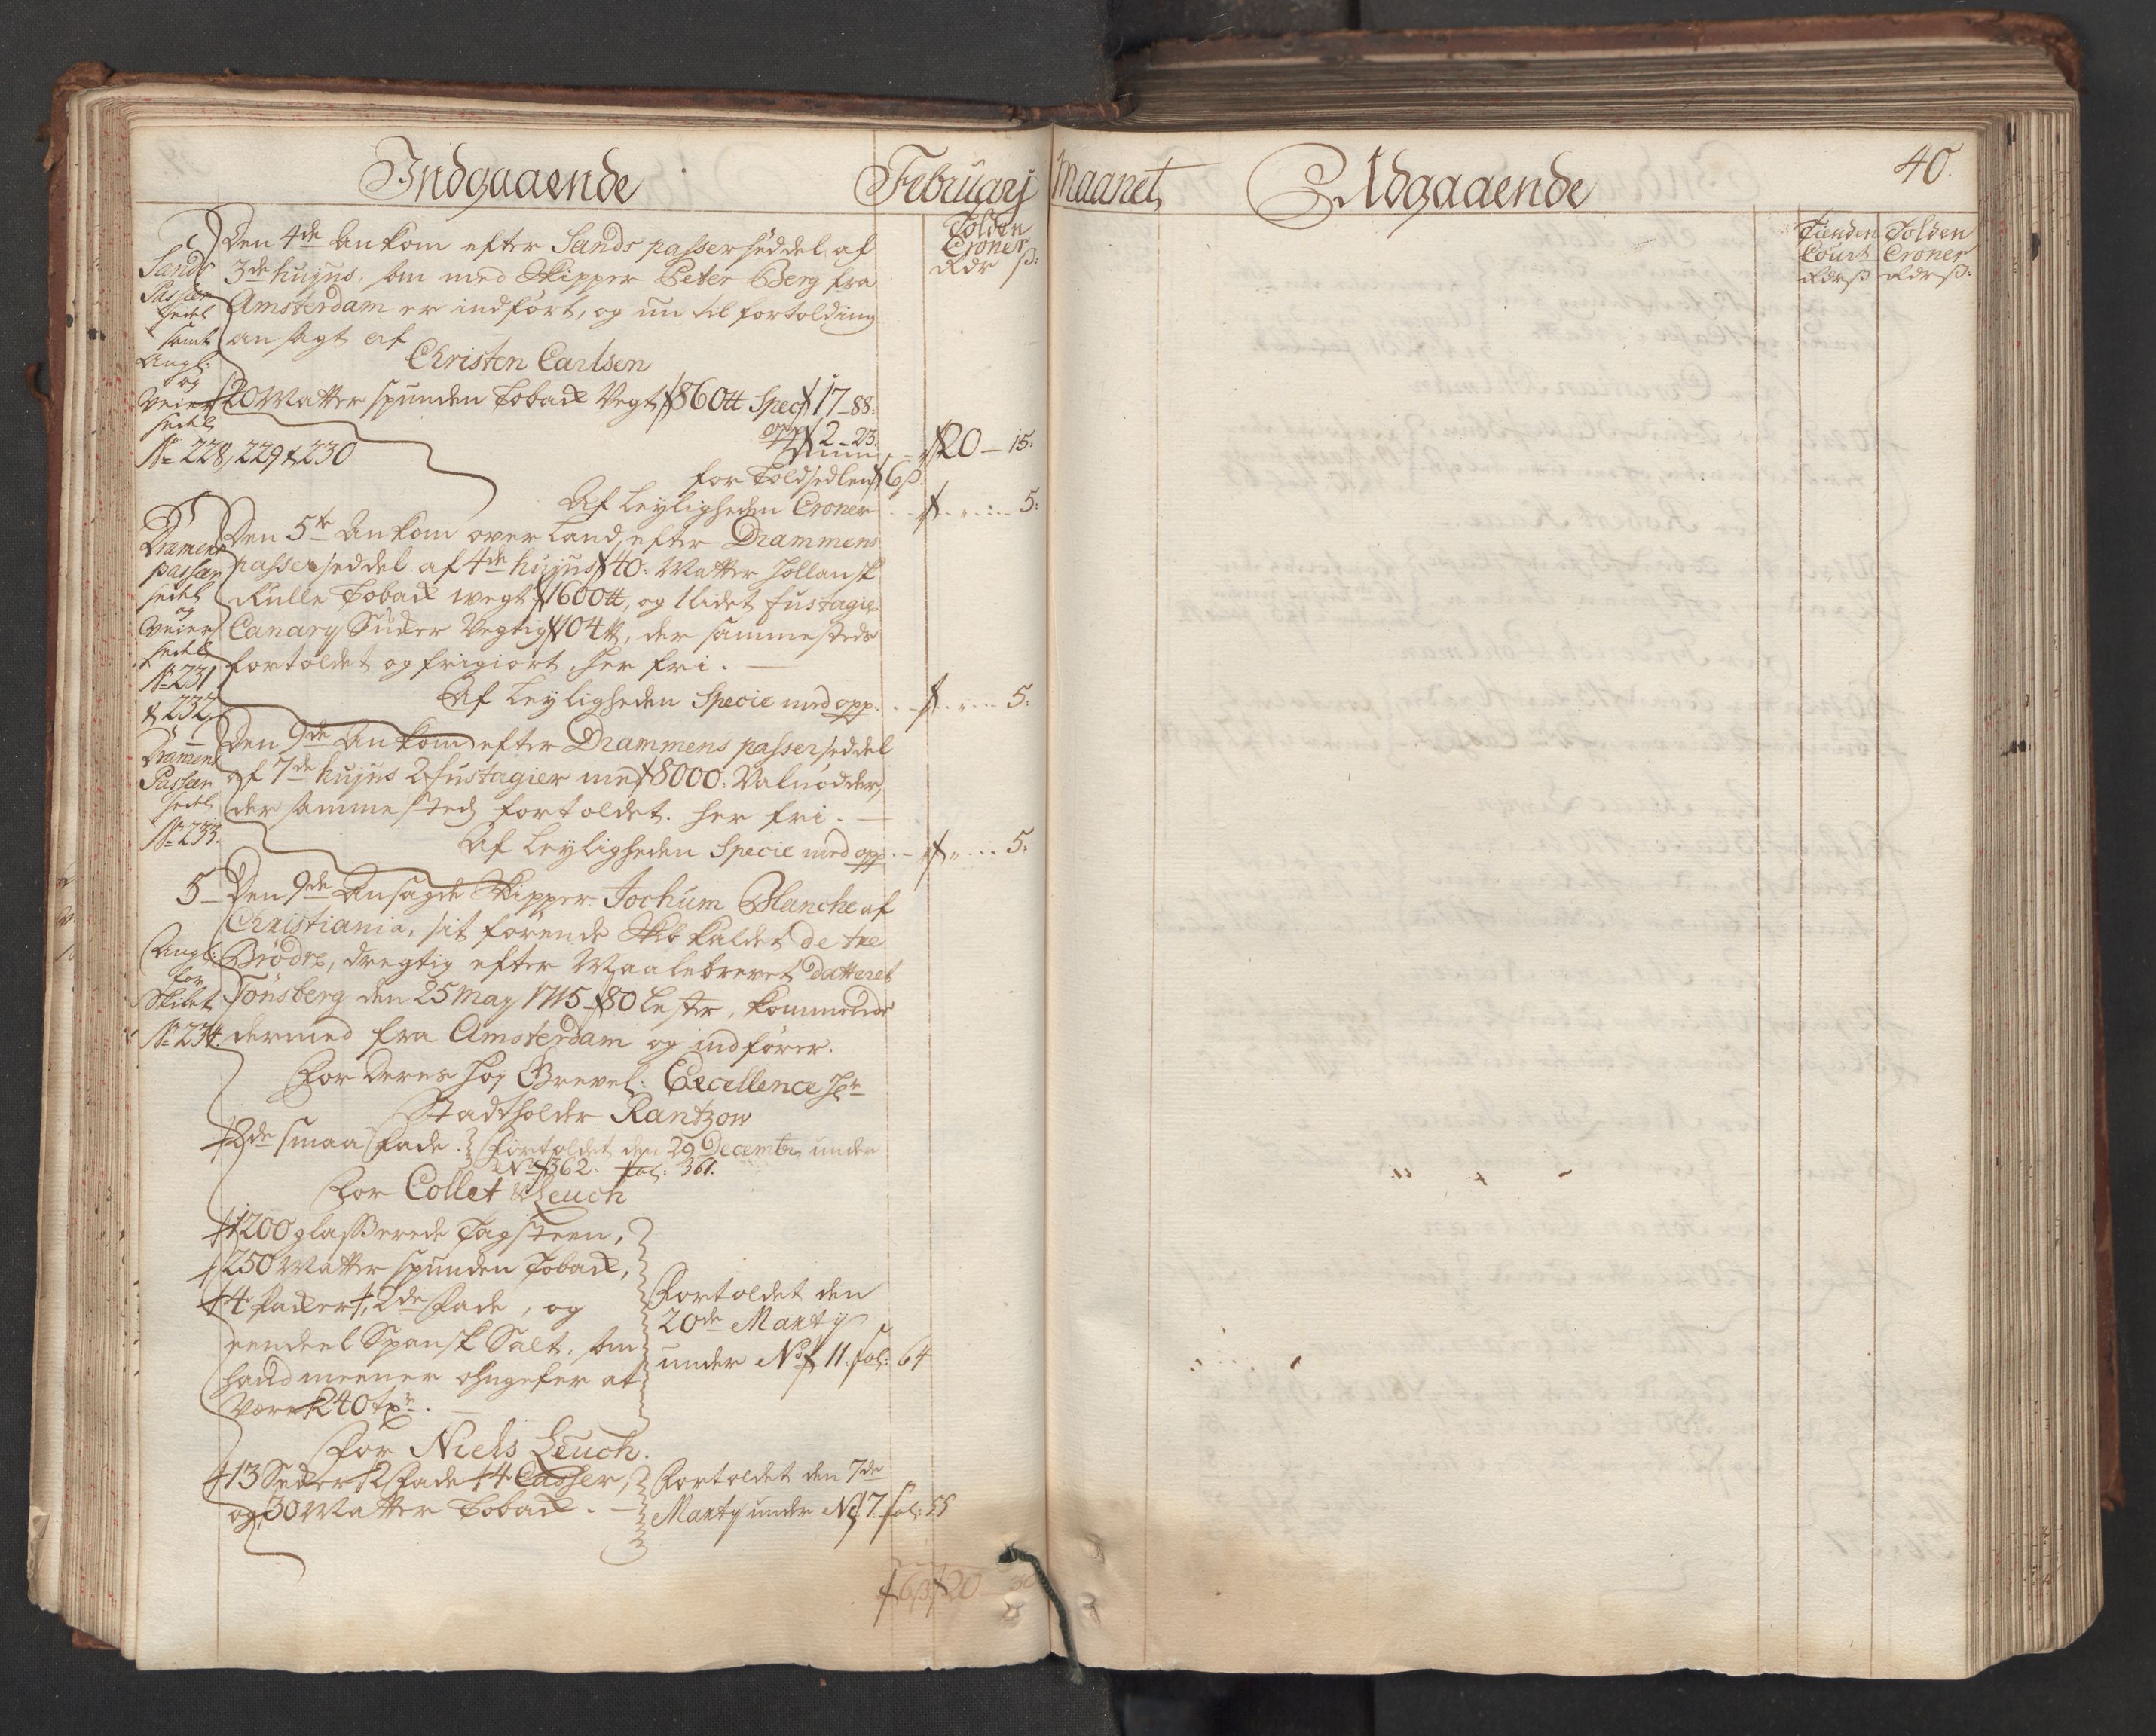 Indgaaende
Februarj Maanet
Udgaaende
40.
Tolden
Croner
Rdr ß:
Tienden Tolden
Court Croner
Rdr ß Rdr ß:
Sands
Passer
sedel
samt
Angl:
og
Veier
sedel
No 228, 229 & 230
Den 4de Ankom efter Sands passerseddel af
3de hujus, som med Skipper Peter Berg fra
Amsterdam er indført, og nu til fortolding
ansagt af
Christen Carlsen
20 Matter spunden Toback Vegt 860 tt Spec 17 - 88:
opp 2 - 23.
20 - 15:
for Toldsedlen 6 ß.
Af Leyligheden Croner 5:
Dramens
passer
sedel
og
Veier
sedel
No 231
& 232.
Den 5te Ankom over Land, efter Drammens
passerseddel af 4de hujus 40: Matter Hollansk
Rulle Toback wegt 1600 tt, og 1 lidet fustagie
Canary Sucker Vegtig 104 tt, der sammesteds
fortoldet og frigiort, her fri.
Af Leyligheden Specie med opp: 5:
Dramens
Passer
sedel
No 233.
Den 9de Ankom efter Drammens passerseddel
af 7de hujus 2 fustagier med 8000: Valnødder,
der sammested fortoldet. her fri.
Af Leyligheden Specie med opp: 5:
5
Angl:
for
Skibet
No 234.
Den 9de Ansagde Skipper Jochum Blanche af
Christiania, sit førende Skib kaldet de tre
Brødre, dregtig efter Maalebrevet Datteret
Tönsberg den 25 May 1715 80 Lester, kommende
dermed fra Amsterdam og indfører.
For Deres Høj Grevel: Excellence Hr
Stadtholder Rantzow
2de smaa Fade. Fortoldet den 29 Decembr under
No 362. fol: 361.
For Collet & Leuch
1200 glasserede Tagsteen,
250 Matter spunden Toback,
4 Packer, 2de Fade, og
eendeel Spansk Salt, som
hand meener ohngefer at
være 240 tr.
Fortoldet den
20de Marty
under No 11. fol: 64
For Niels Leuch.
13 Secker 2 Fade 4 Casser,
og 30 Matter Toback.
Fortoldet den 7de
Marty under No 7. fol: 55
6 ß 20 - 30